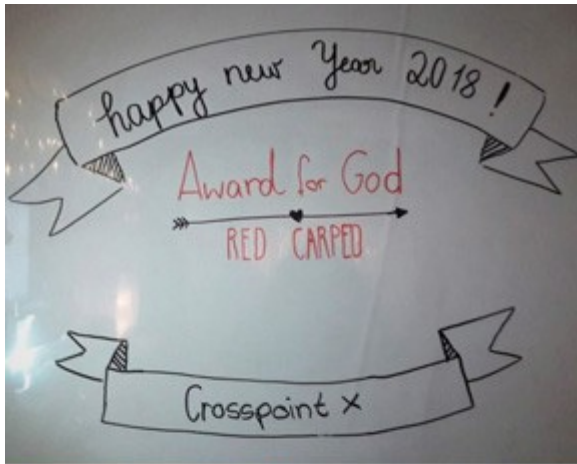 happy new Year 2018!
Award for God
RED CARPED
Crosspoint x